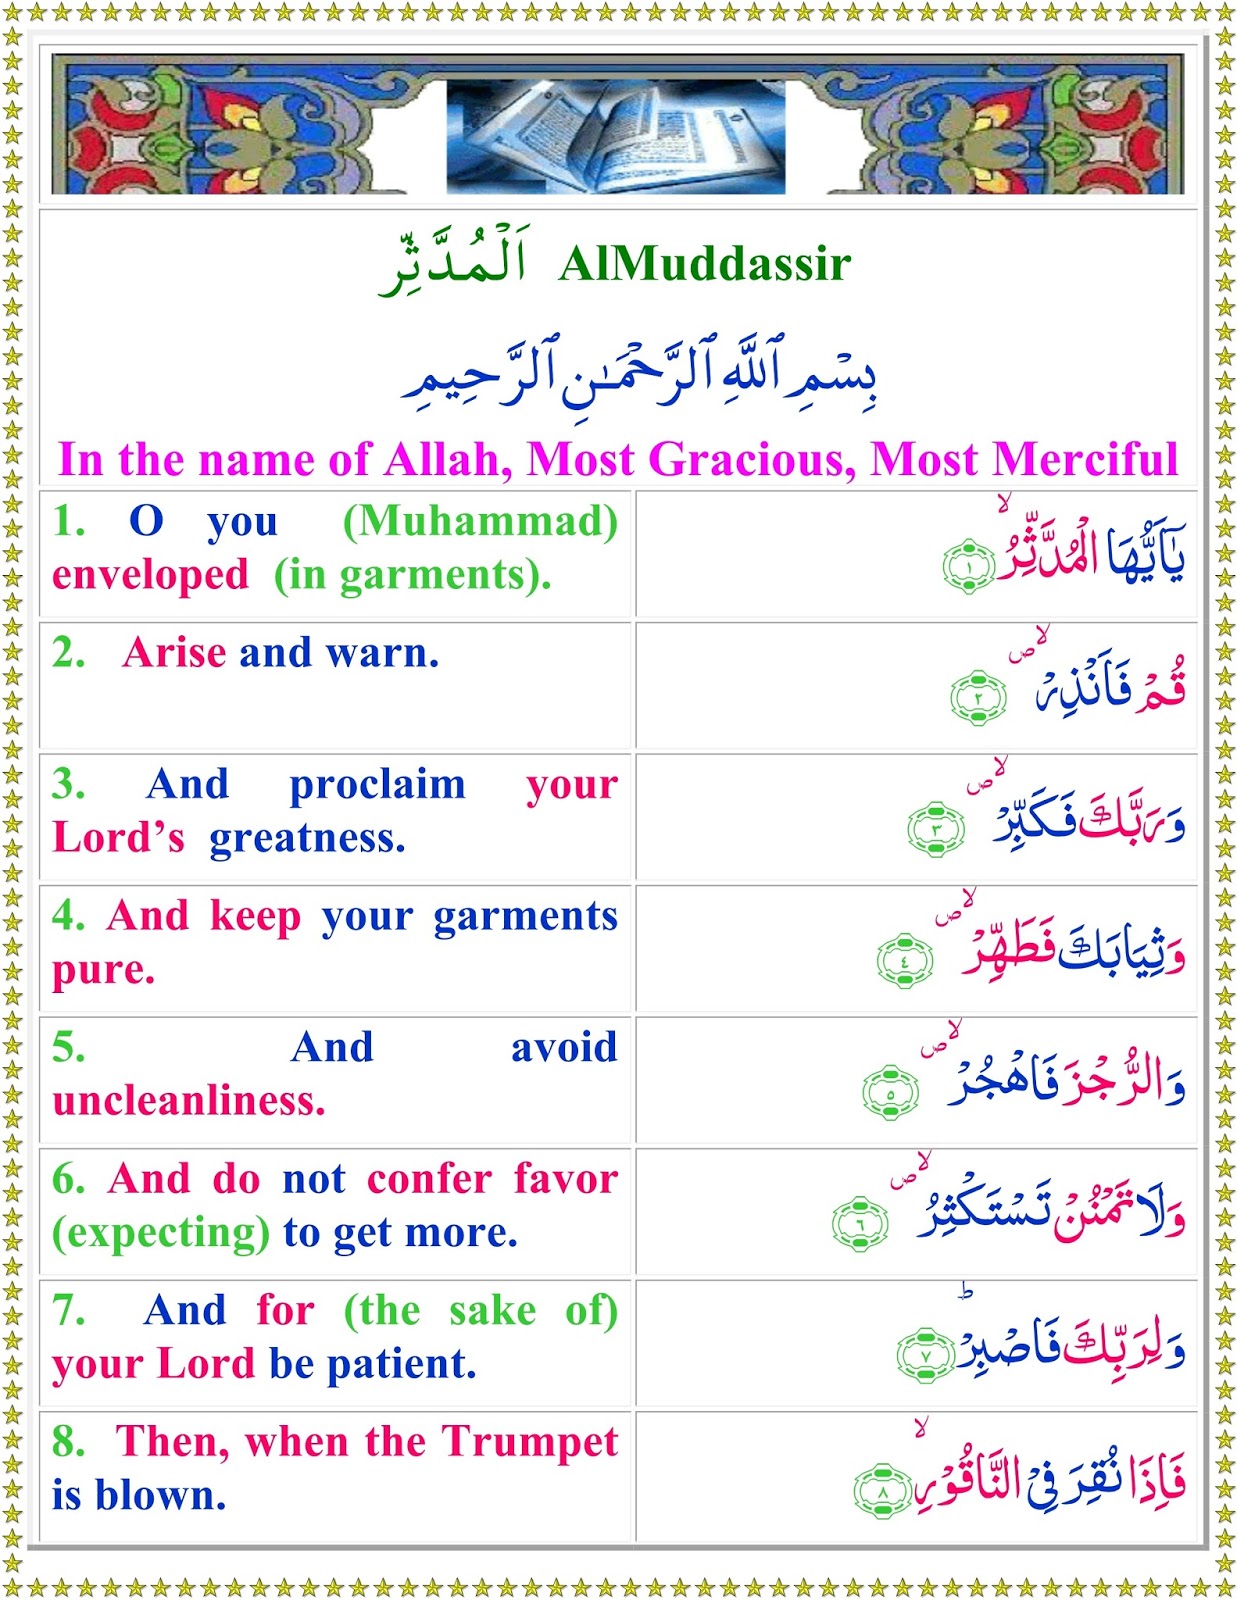 اَلْمُدَّثِّر AlMuddassir
بِسْمِ ٱللَّهِ ٱلرَّحْمَـٰنِ ٱلرَّحِيمِ
In the name of Allah, Most Gracious, Most Merciful
1. O you (Muhammad)
enveloped (in garments).
يٰۤاَيُّهَا الْمُدَّثِّرُ ۙ ﴿۱﴾
2. Arise and warn.
قُمْ فَاَنْذِرْ ۪ۙ ﴿۲﴾
3. And proclaim your
Lord’s greatness.
وَرَبَّكَ فَكَبِّرْ ۪ۙ ﴿۳﴾
4. And keep your garments
pure.
وَثِيَابَكَ فَطَهِّرْ ۪ۙ ﴿٤﴾
5. And avoid
uncleanliness.
وَالرُّجْزَ فَاهْجُرْ ۪ۙ ﴿۵﴾
6. And do not confer favor
(expecting) to get more.
وَلَا تَمْنُنْ تَسْتَكْثِرُ ۪ۙ ﴿٦﴾
7. And for (the sake of)
your Lord be patient.
وَ لِرَبِّكَ فَاصْبِرْ ؕ ﴿۷﴾
8. Then, when the Trumpet
is blown.
فَاِذَا نُقِرَ فِىْ النَّاقُوْرِ ۙ ﴿۸﴾